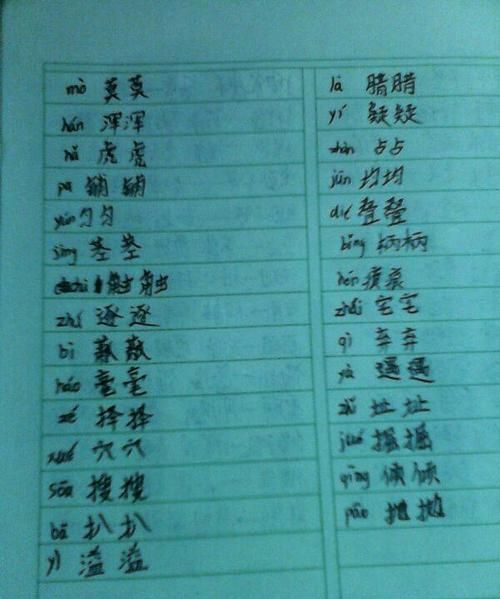 mò 莫莫
hún 浑浑
hǔ 虎虎
pù 铺铺
yún 匀匀
jīng 茎茎
chù 触触
zhú 逐逐
bì 蔽蔽
háo 毫毫
zé 择择
xué 穴穴
sōu 搜搜
bā 扒扒
yì 溢溢
là 腊腊
yí 疑疑
zhàn 占占
jūn 均均
dié 叠叠
bǐng 柄柄
hén 痕痕
zhái 宅宅
qì 弃弃
yù 遇遇
zhǐ 址址
jué 掘掘
qīng 倾倾
pāo 抛抛